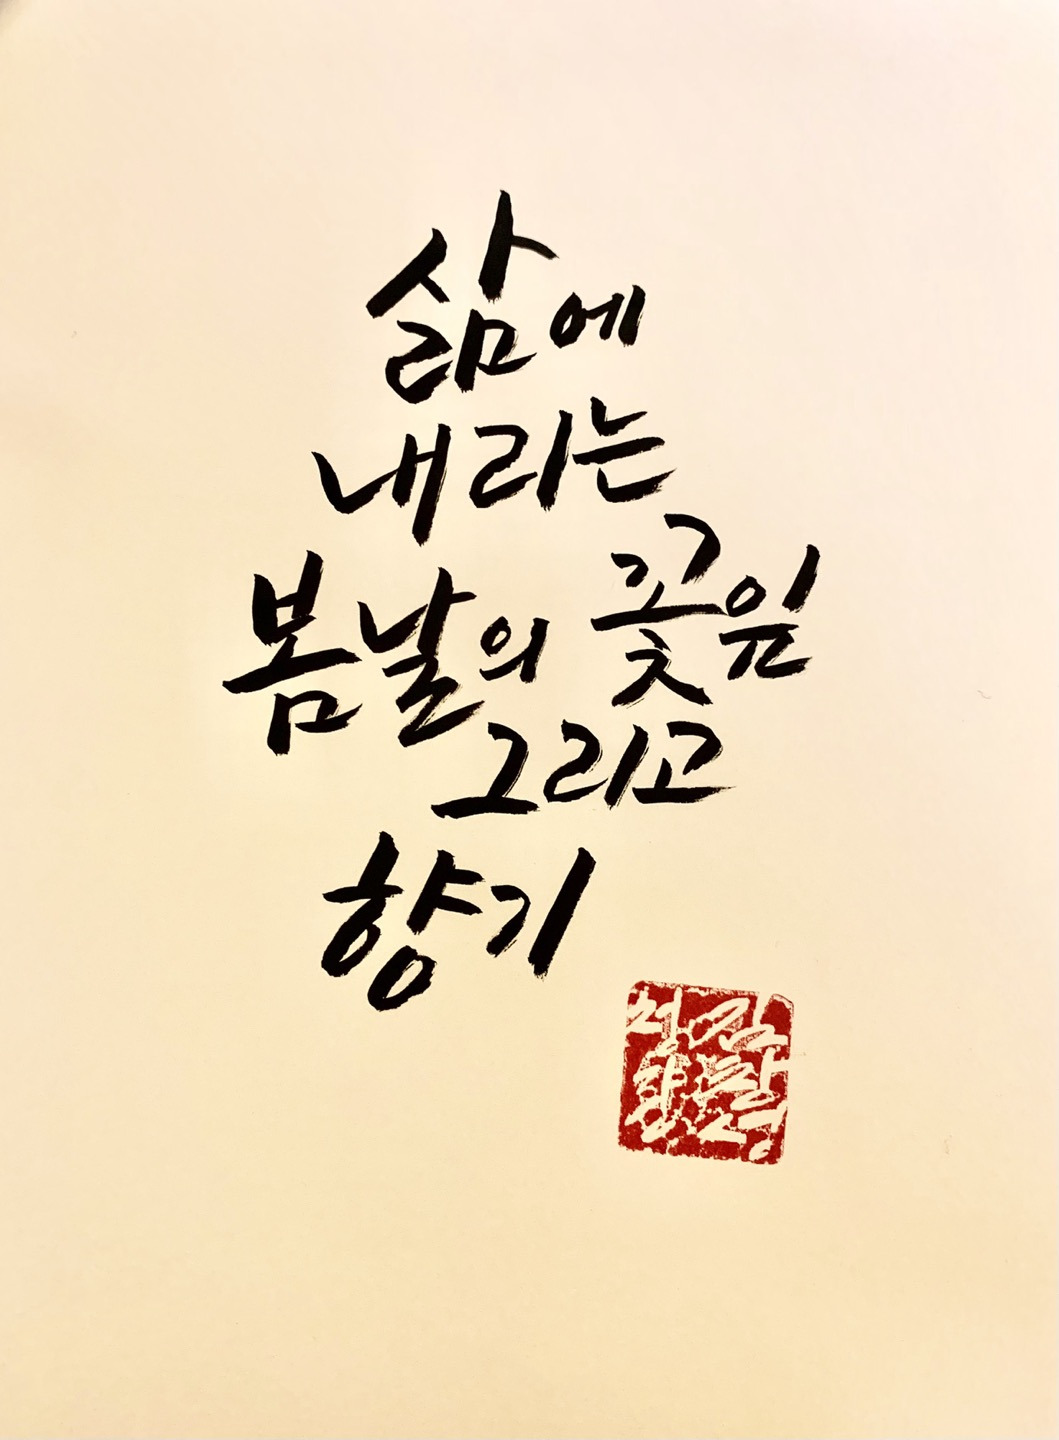 삶에
내리는
봄날의 꽃잎
그리고
향기